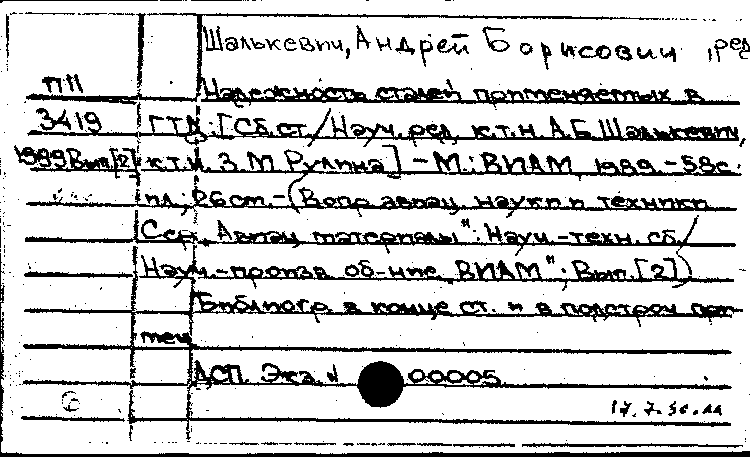 Шалькевич, Андрей Борисович, ред
П11 Надежность сталей применяемых в
3419 ГТД: [Сб.ст./Науч.ред. к.т.н. А.Б.Шалькевич,
1989 Вып.[2] к.т.н. З.М.Рулина] – М.: ВИАМ, 1989. – 58с.
ил., 26см. – (Вопр. авиац. науки и техники
Сер. Авиац. материалы": Науч.-техн. сб./
Науч.-произв. об-ние "ВИАМ"; Вып. [2])
Библиогр. в конце ст. и в подстроч. при-
меч.
ДСП. Экз. N 00005